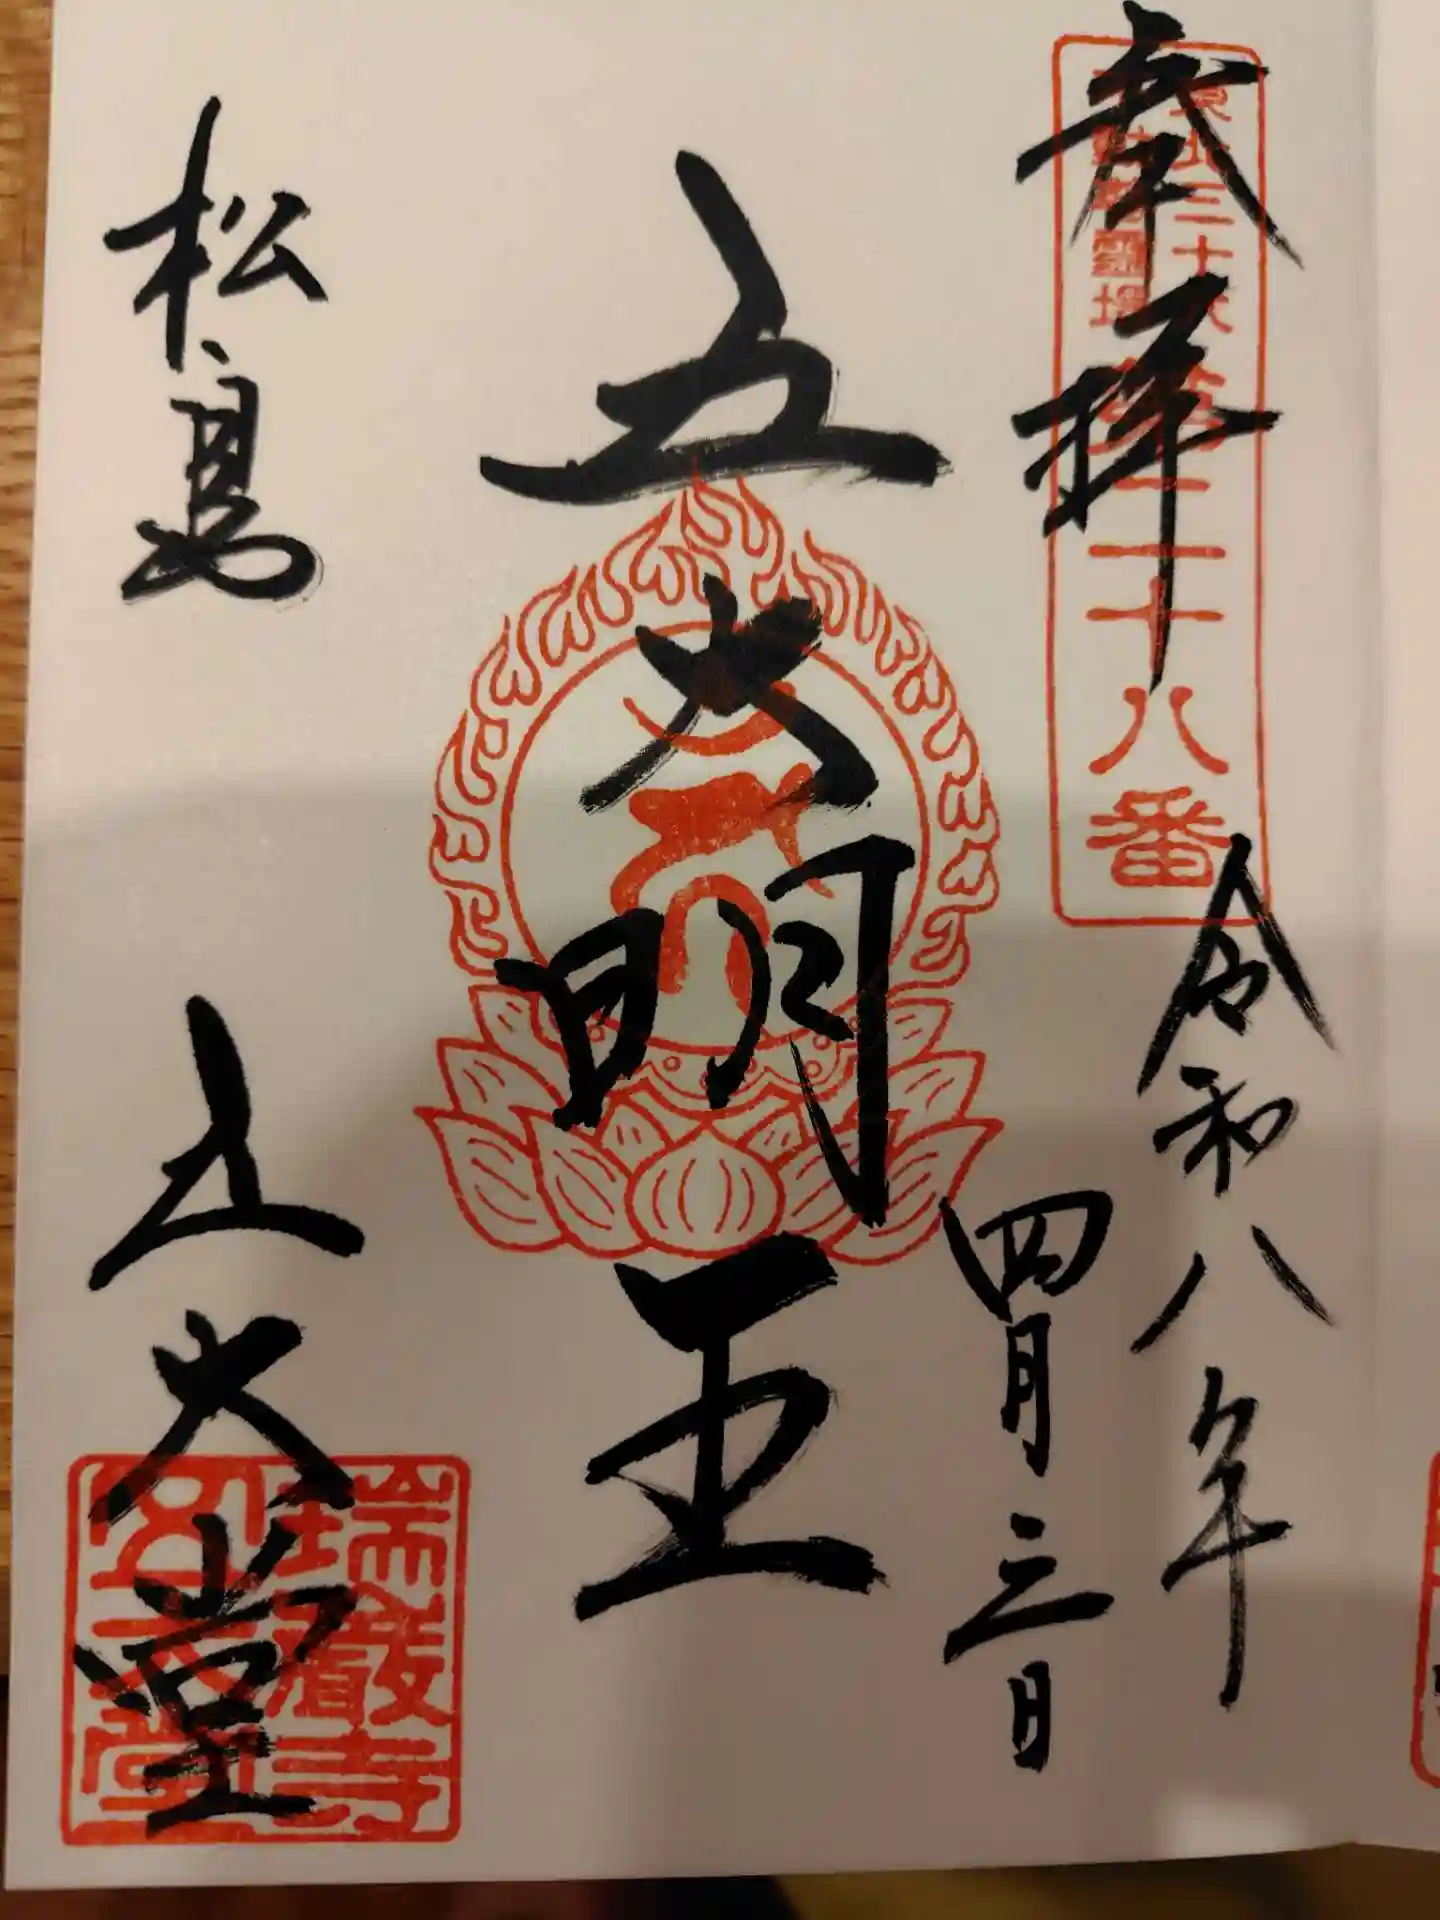 奉拝
東北三十六
不動尊霊場
第二十八番
令和八年
四月三日
五大明王
松島
五大堂
瑞巌寺
五大堂